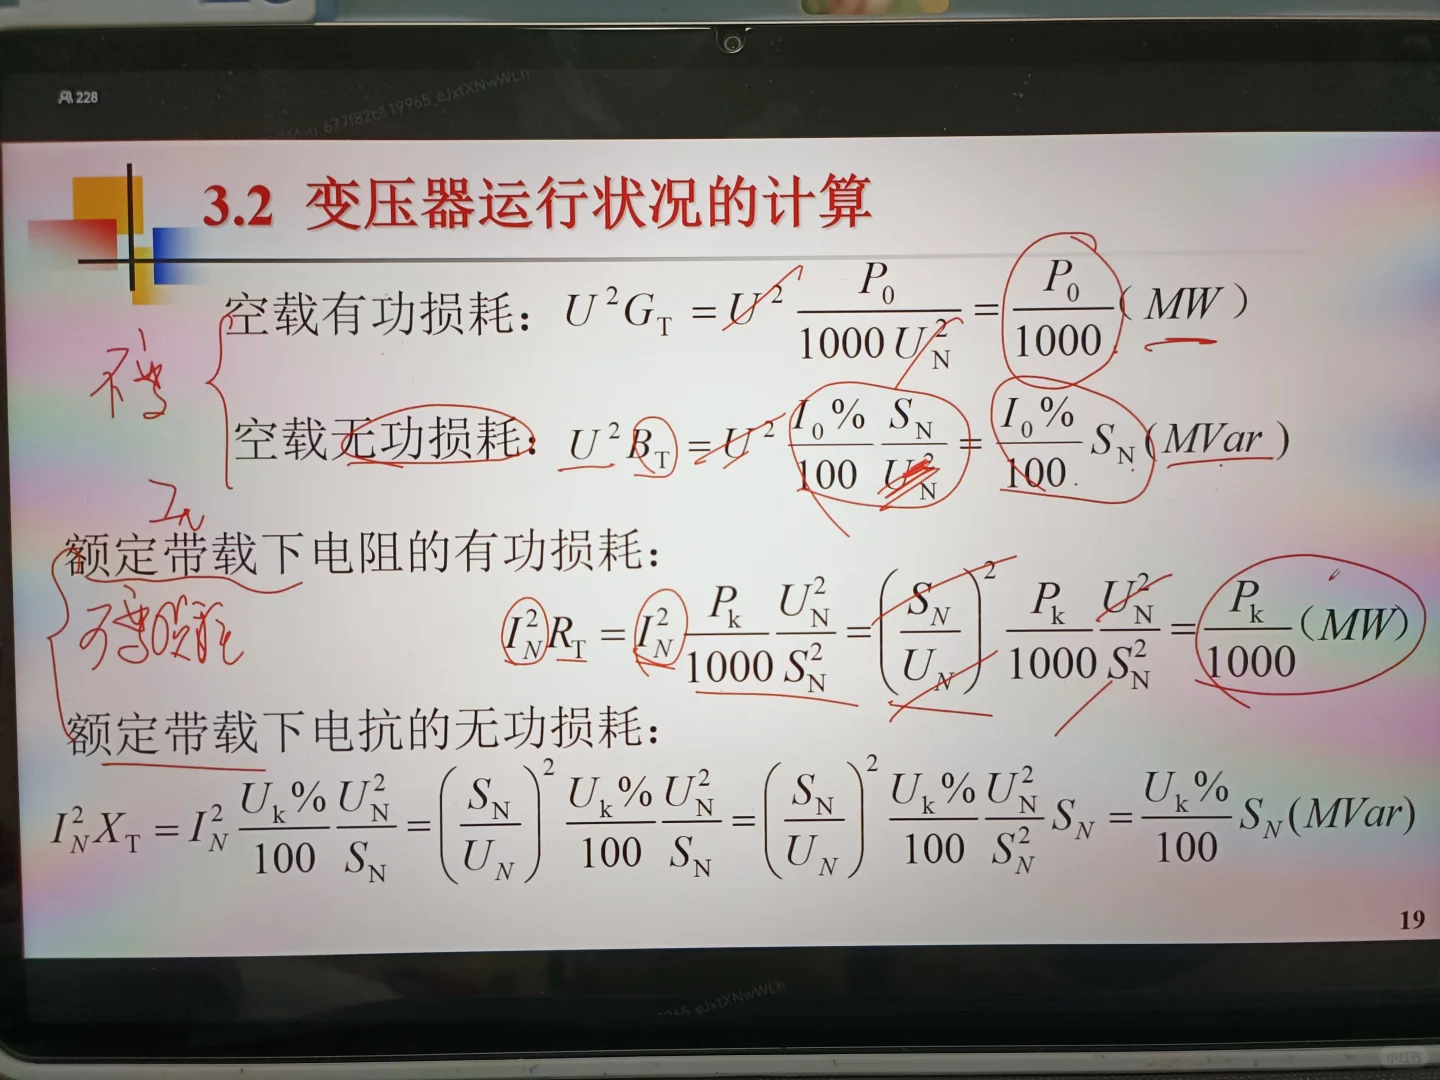 228
677f82c119965_eJxtXNwWLh
3.2 变压器运行状况的计算
空载有功损耗： U²G_T = U² P₀/(1000 U_N²) = P₀/1000 (MW)
不变
空载无功损耗： U²B_T = U² (I₀%/100) (S_N/U_N²) = (I₀%/100) S_N (MVar)
I_N
额定带载下电阻的有功损耗：
可变损耗
I_N² R_T = I_N² (P_k/1000) (U_N²/S_N²) = (S_N/U_N)² (P_k/1000) (U_N²/S_N²) = P_k/1000 (MW)
额定带载下电抗的无功损耗：
I_N² X_T = I_N² (U_k%/100) (U_N²/S_N) = (S_N/U_N)² (U_k%/100) (U_N²/S_N) = (S_N/U_N)² (U_k%/100) (U_N²/S_N²) S_N = (U_k%/100) S_N (MVar)
19
9965_eJxtXNwWLh
小红书